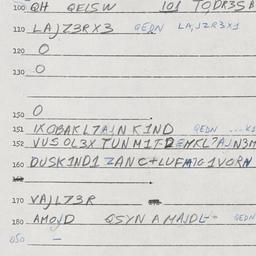 100 QH QEISW 101 TODR3SB
110 LAJZ3RX3 QEDN LAJ2R3X1
120 O
130 O
150 O
151 IXOBAKL7AJN K1ND QEDN ...K1
152 VUSOL3X TUNM1T-DEMKL7AJN3M
160 DUSK1ND1 ZANC+LUFM1G1VORN
160
170 VAJL73R
180 AMOJD QSYN AMAJDL- QEDN
050 -